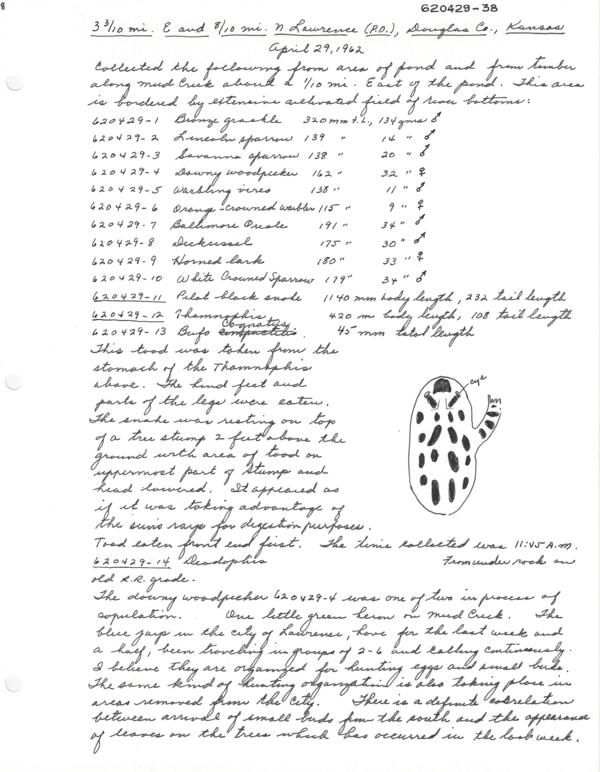 8
620429-38
3 3/10 mi. E and 8/10 mi. N Lawrence (P.O.), Douglas Co., Kansas
April 29, 1962
Collected the following from area of pond and from timber
along Mud Creek about a 1/10 mi. East of the pond. This area
is bordered by extensive cultivated field of river bottoms:
620429-1 Bronze grackle 320 mm t.l., 134 gms ♂
620429-2 Lincoln sparrow 139 " 14 " ♂
620429-3 Savanna sparrow 138 " 20 " ♂
620429-4 Downy woodpecker 162 " 32 " ♀
620429-5 Warbling vireo 138 " 11 " ♂
620429-6 Orange-crowned warbler 115 " 9 " ♀
620429-7 Baltimore Oriole 191 " 34 " ♂
620429-8 Dickcissel 175 " 30 " ♂
620429-9 Horned lark 180 " 33 " ♀
620429-10 White Crowned Sparrow 179 " 34 " ♂
620429-11 Pilot black snake 1140 mm body length, 232 tail length
620429-12 Thamnophis 420 m body length, 108 tail length
620429-13 Bufo Cognatus 45 mm total length
This toad was taken from the
stomach of the Thamnophis
above. The hind feet and
parts of the legs were eaten.
The snake was resting on top
of a tree stump 2 feet above the
ground with area of toad on
uppermost part of stump and
head lowered. It appeared as
if it was taking advantage of
the sun's rays for digestion purposes.
eye
Toad eaten front end first. The time collected was 11:45 A.M.
620429-14 Diadophis From under rock on
old R.R. grade.
The downy woodpecker 620429-4 was one of two in process of
copulation. One little green heron on Mud Creek. The
blue jays in the city of Lawrence, have for the last week and
a half, been traveling in groups of 2-6 and calling continuously.
I believe they are organized for hunting eggs and small birds.
The same kind of hunting organization is also taking place in
areas removed from the city. There is a definite correlation
between arrival of small birds from the south and the appearance
of leaves on the trees which has occurred in the last week.